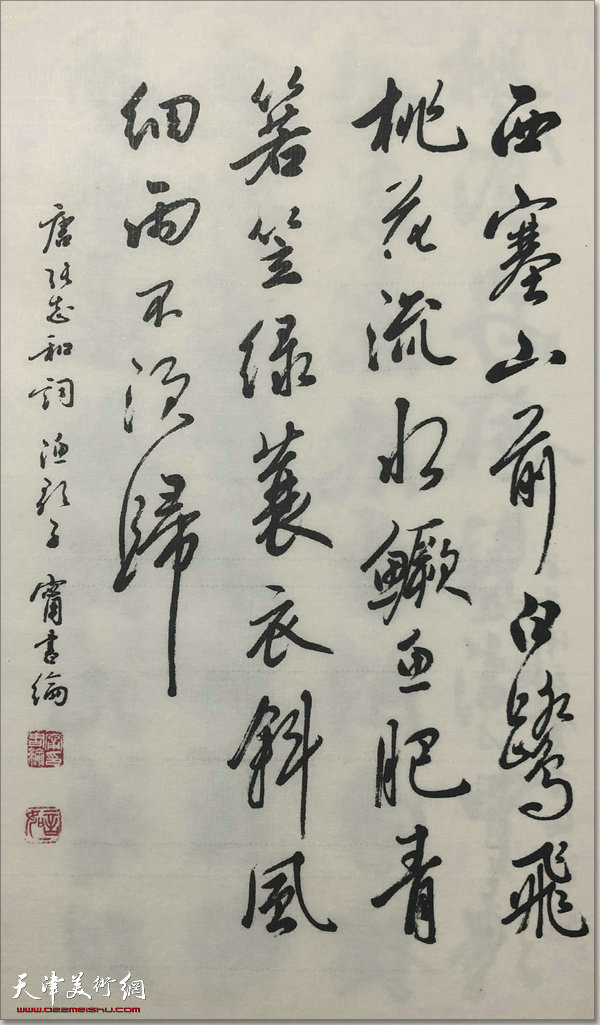 西塞山前白鷺飛
桃花流水鱖魚肥青
箬笠绿蓑衣斜風
細雨不須歸
唐張志和詞 漁歌子 甯書綸
天津美術網
www.022meishu.com